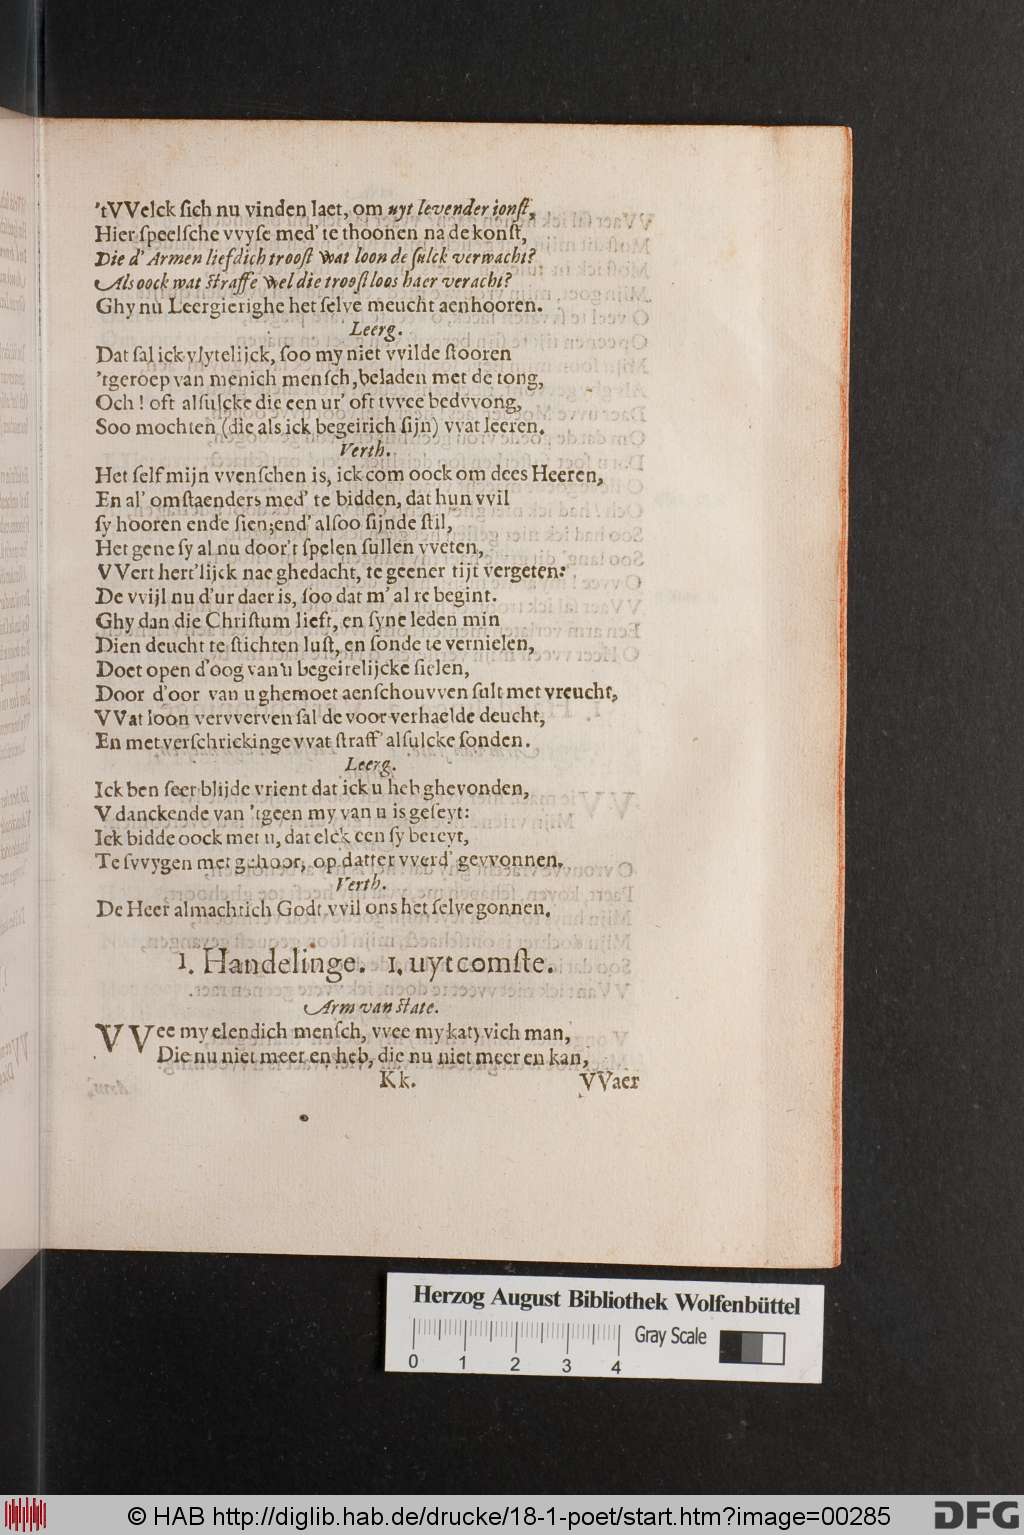 'tVVelck ſich nu vinden laet, om uyt levender jonſt,
Hier ſpeelſche vvyſe med' te thoonen na de konſt,
Die d'Armen liefdich trooſt wat loon de ſulck verwacht?
Als oock wat straffe wel die trooſtloos haer veracht?
Ghy nu Leergierighe het ſelve meucht aenhooren.
Leerg.
Dat ſal ick vlytelijck, ſoo my niet vvilde ſtooren
'tgeroep van menich menſch, beladen met de tong,
Och! oft alſulcke die een ur' oft tvvee bedvvong,
Soo mochten (die als ick begeirich ſijn) vvat leeren.
Verth.
Het ſelf mijn vvenſchen is, ick com oock om dees Heeren,
En al' omſtaenders med' te bidden, dat hun vvil
ſy hooren ende ſien; end' alſoo ſijnde ſtil,
Het gene ſy al nu door't ſpelen ſullen vveten,
VVert hert'lijck nae ghedacht, te geener tijt vergeten:
De vvijl nu d'ur daer is, ſoo dat m'al re begint.
Ghy dan die Chriſtum lieft, en ſyne leden min
Dien deucht te ſtichten luſt, en ſonde te vernielen,
Doet open d'oog van'u begeirelijcke ſielen,
Door d'oor van u ghemoet aenſchouvven ſult met vreucht,
VVat loon vervverven ſal de voor verhaelde deucht,
En met verſchrickinge vvat ſtraff' alſulcke ſonden.
Leerg.
Ick ben ſeer blijde vrient dat ick u heb ghevonden,
V danckende van 'tgeen my van u is geſeyt:
Ick bidde oock met u, dat elck een ſy bereyt,
Te ſvvygen met gehoor, op datter vverd' gevvonnen.
Verth.
De Heer almachtich Godt vvil ons het ſelve gonnen.
1. Handelinge. 1. uytcomſte.
Arm van state.
VVee my elendich menſch, vvee my katyvich man,
Die nu niet meer en heb, die nu niet meer en kan,
Kk. VVaer
Herzog August Bibliothek Wolfenbüttel
Gray Scale
0 1 2 3 4
© HAB http://diglib.hab.de/drucke/18-1-poet/start.htm?image=00285
DFG